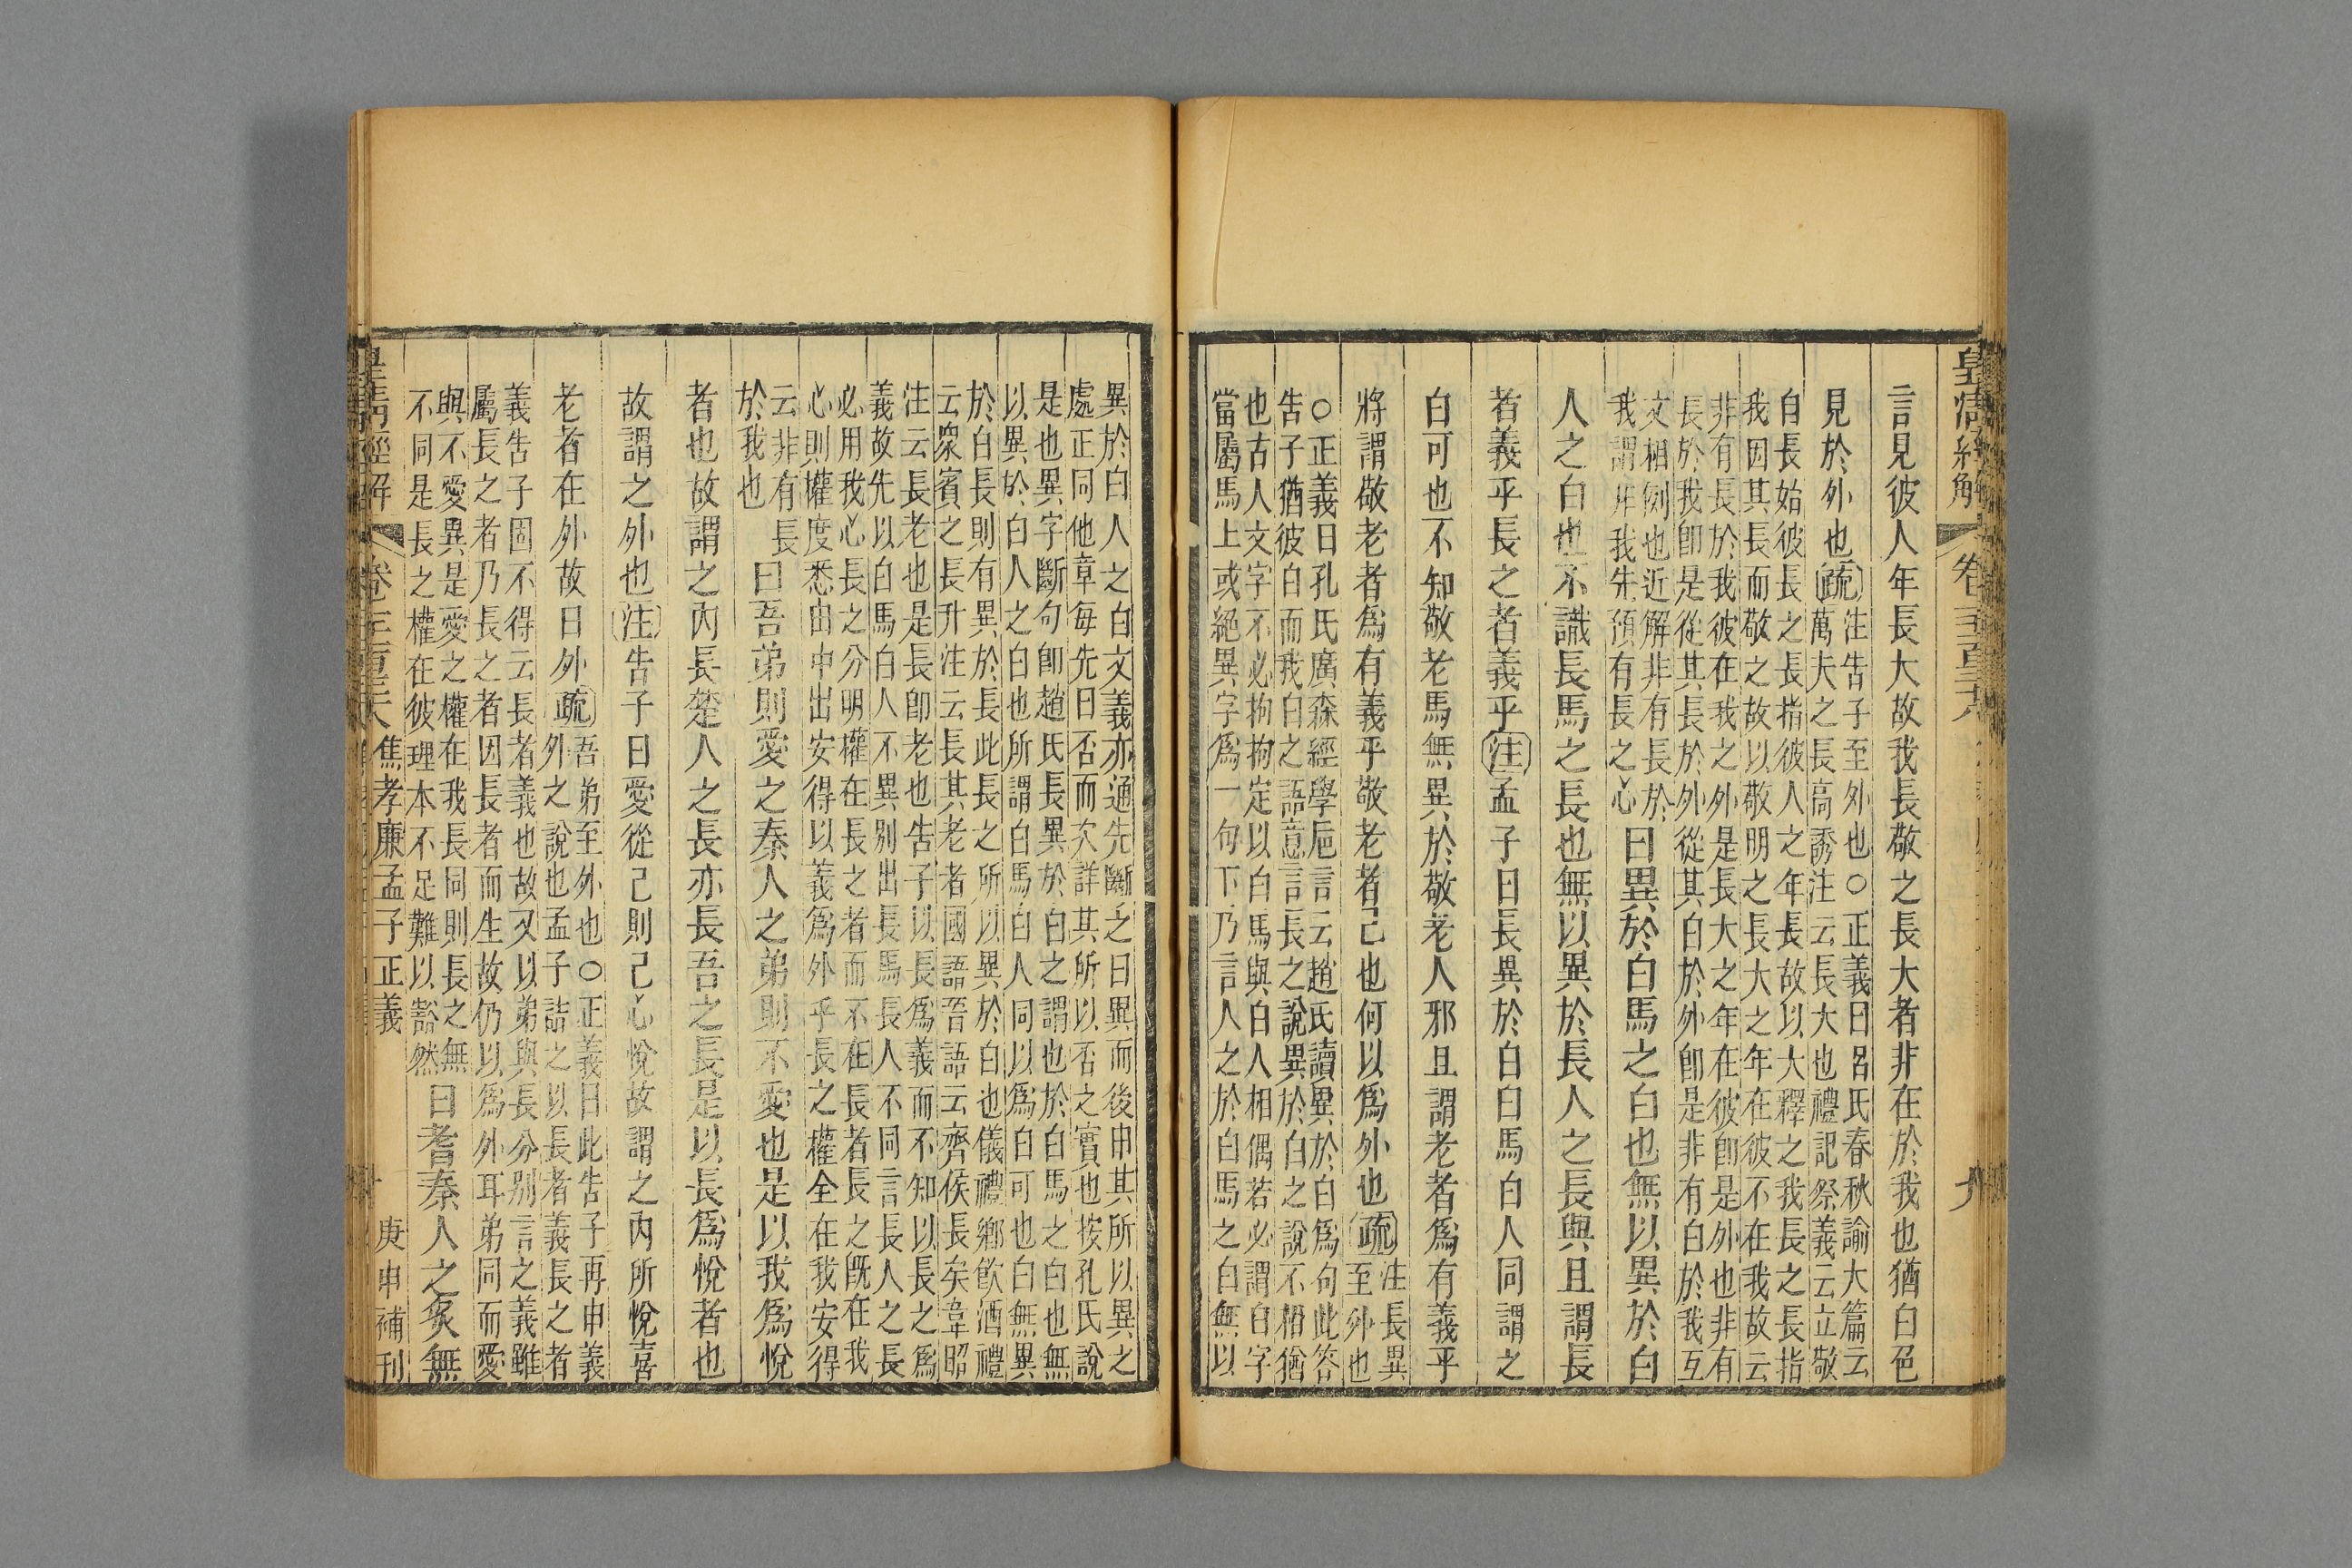 皇清經解
九
言見彼人年長大故我長敬之長大者非在於我也猶白色
見於外也疏
注告子至外也○正義曰呂氏春秋諭大篇云
萬夫之長高誘注云長大也禮記祭義云立敬
自長始彼長之長指彼人之年長故以大釋之我長之長指
我因其長而敬之故以敬明之長大之年在彼不在我故云
非有長於我彼在我之外是長大之年在彼卽是外也非有
長於我卽是從其長於外從其白於外卽是非有白於我互
文相例也近解非有長於
我謂非我先預有長之心
曰異於白馬之白也無以異於白
人之白也不識長馬之長也無以異於長人之長與且謂長
者義乎長之者義乎注孟子曰長異於白白馬白人同謂之
白可也不知敬老馬無異於敬老人邪且謂老者爲有義乎
將謂敬老者爲有義乎敬老者己也何以爲外也疏
注長異
至外也
○正義曰孔氏廣森經學巵言云趙氏讀異於白爲句此答
告子猶彼白而我白之語意言長之說異於白之說不相猶
也古人文字不必拘拘定以白馬與白人相偶若必謂白字
當屬馬上或絕異字爲一句下乃言人之於白馬之白無以
異於白人之白文義亦通先斷之曰異而後申其所以異之
處正同他章每先曰否而次詳其所以否之實也按孔氏說
是也異字斷句卽趙氏長異於白之謂也於白馬之白也無
以異於白人之白也所謂白馬白人同以爲白可也白無異
於白長則有異於長此長之所以異於白也儀禮鄉飮酒禮
云衆賓之長升注云長其老者國語晉語云齊侯長矣韋昭
注云長老也是長卽老也告子以長爲義而不知以長之爲
義故先以白馬白人不異別出長馬長人不同言長人之長
必用我心長之分明權在長之者而不在長者長之旣在我
心則權度悉由中出安得以義爲外乎長之權全在我安得
云非有長
於我也
曰吾弟則愛之秦人之弟則不愛也是以我爲悅
者也故謂之內長楚人之長亦長吾之長是以長爲悅者也
故謂之外也注告子曰愛從己則己心悅故謂之內所悅喜
老者在外故曰外疏
吾弟至外也○正義曰此告子再申義
外之說也孟子詰之以長者義長之者
義告子固不得云長者義也故又以弟與長分別言之義雖
屬長之者乃長之者因長者而生故仍以爲外耳弟同而愛
與不愛異是愛之權在我長同則長之無
不同是長之權在彼理本不足難以豁然
曰耆秦人之炙無
皇清經解
焦孝廉孟子正義
庚申補刊